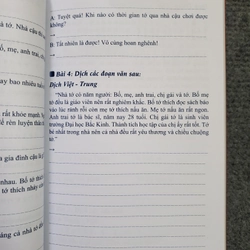 A: Tuyệt quá! Khi nào có thời gian tớ qua nhà cậu chơi được không?
B: Tất nhiên là được! Vô cùng hoan nghênh!
Bài 4: Dịch các đoạn văn sau:
Dịch Việt - Trung
"Nhà tớ có năm người: Bố, mẹ, anh trai, chị gái và tớ. Bố mẹ
tớ đều là giáo viên nên rất nghiêm khắc. Bố tớ thích đọc sách báo
vào lúc rảnh còn mẹ tớ thích nấu ăn. Mẹ tớ nấu ăn rất ngon.
Anh trai tớ là bác sĩ, năm nay 28 tuổi. Chị gái tớ là sinh viên
trường Đại học Bắc Kinh. Thành tích học tập của chị ấy rất tốt. Tớ
bé nhất trong nhà nên cả nhà đều rất yêu thương và chiều chuộng
tớ."
ay bao nhiêu tuổi
rất khỏe mạnh.
để rèn luyện thân
a gia đình cậu là
nhau. Bố tớ
tớ thích nhảy
ảng cả nhà tớ đều